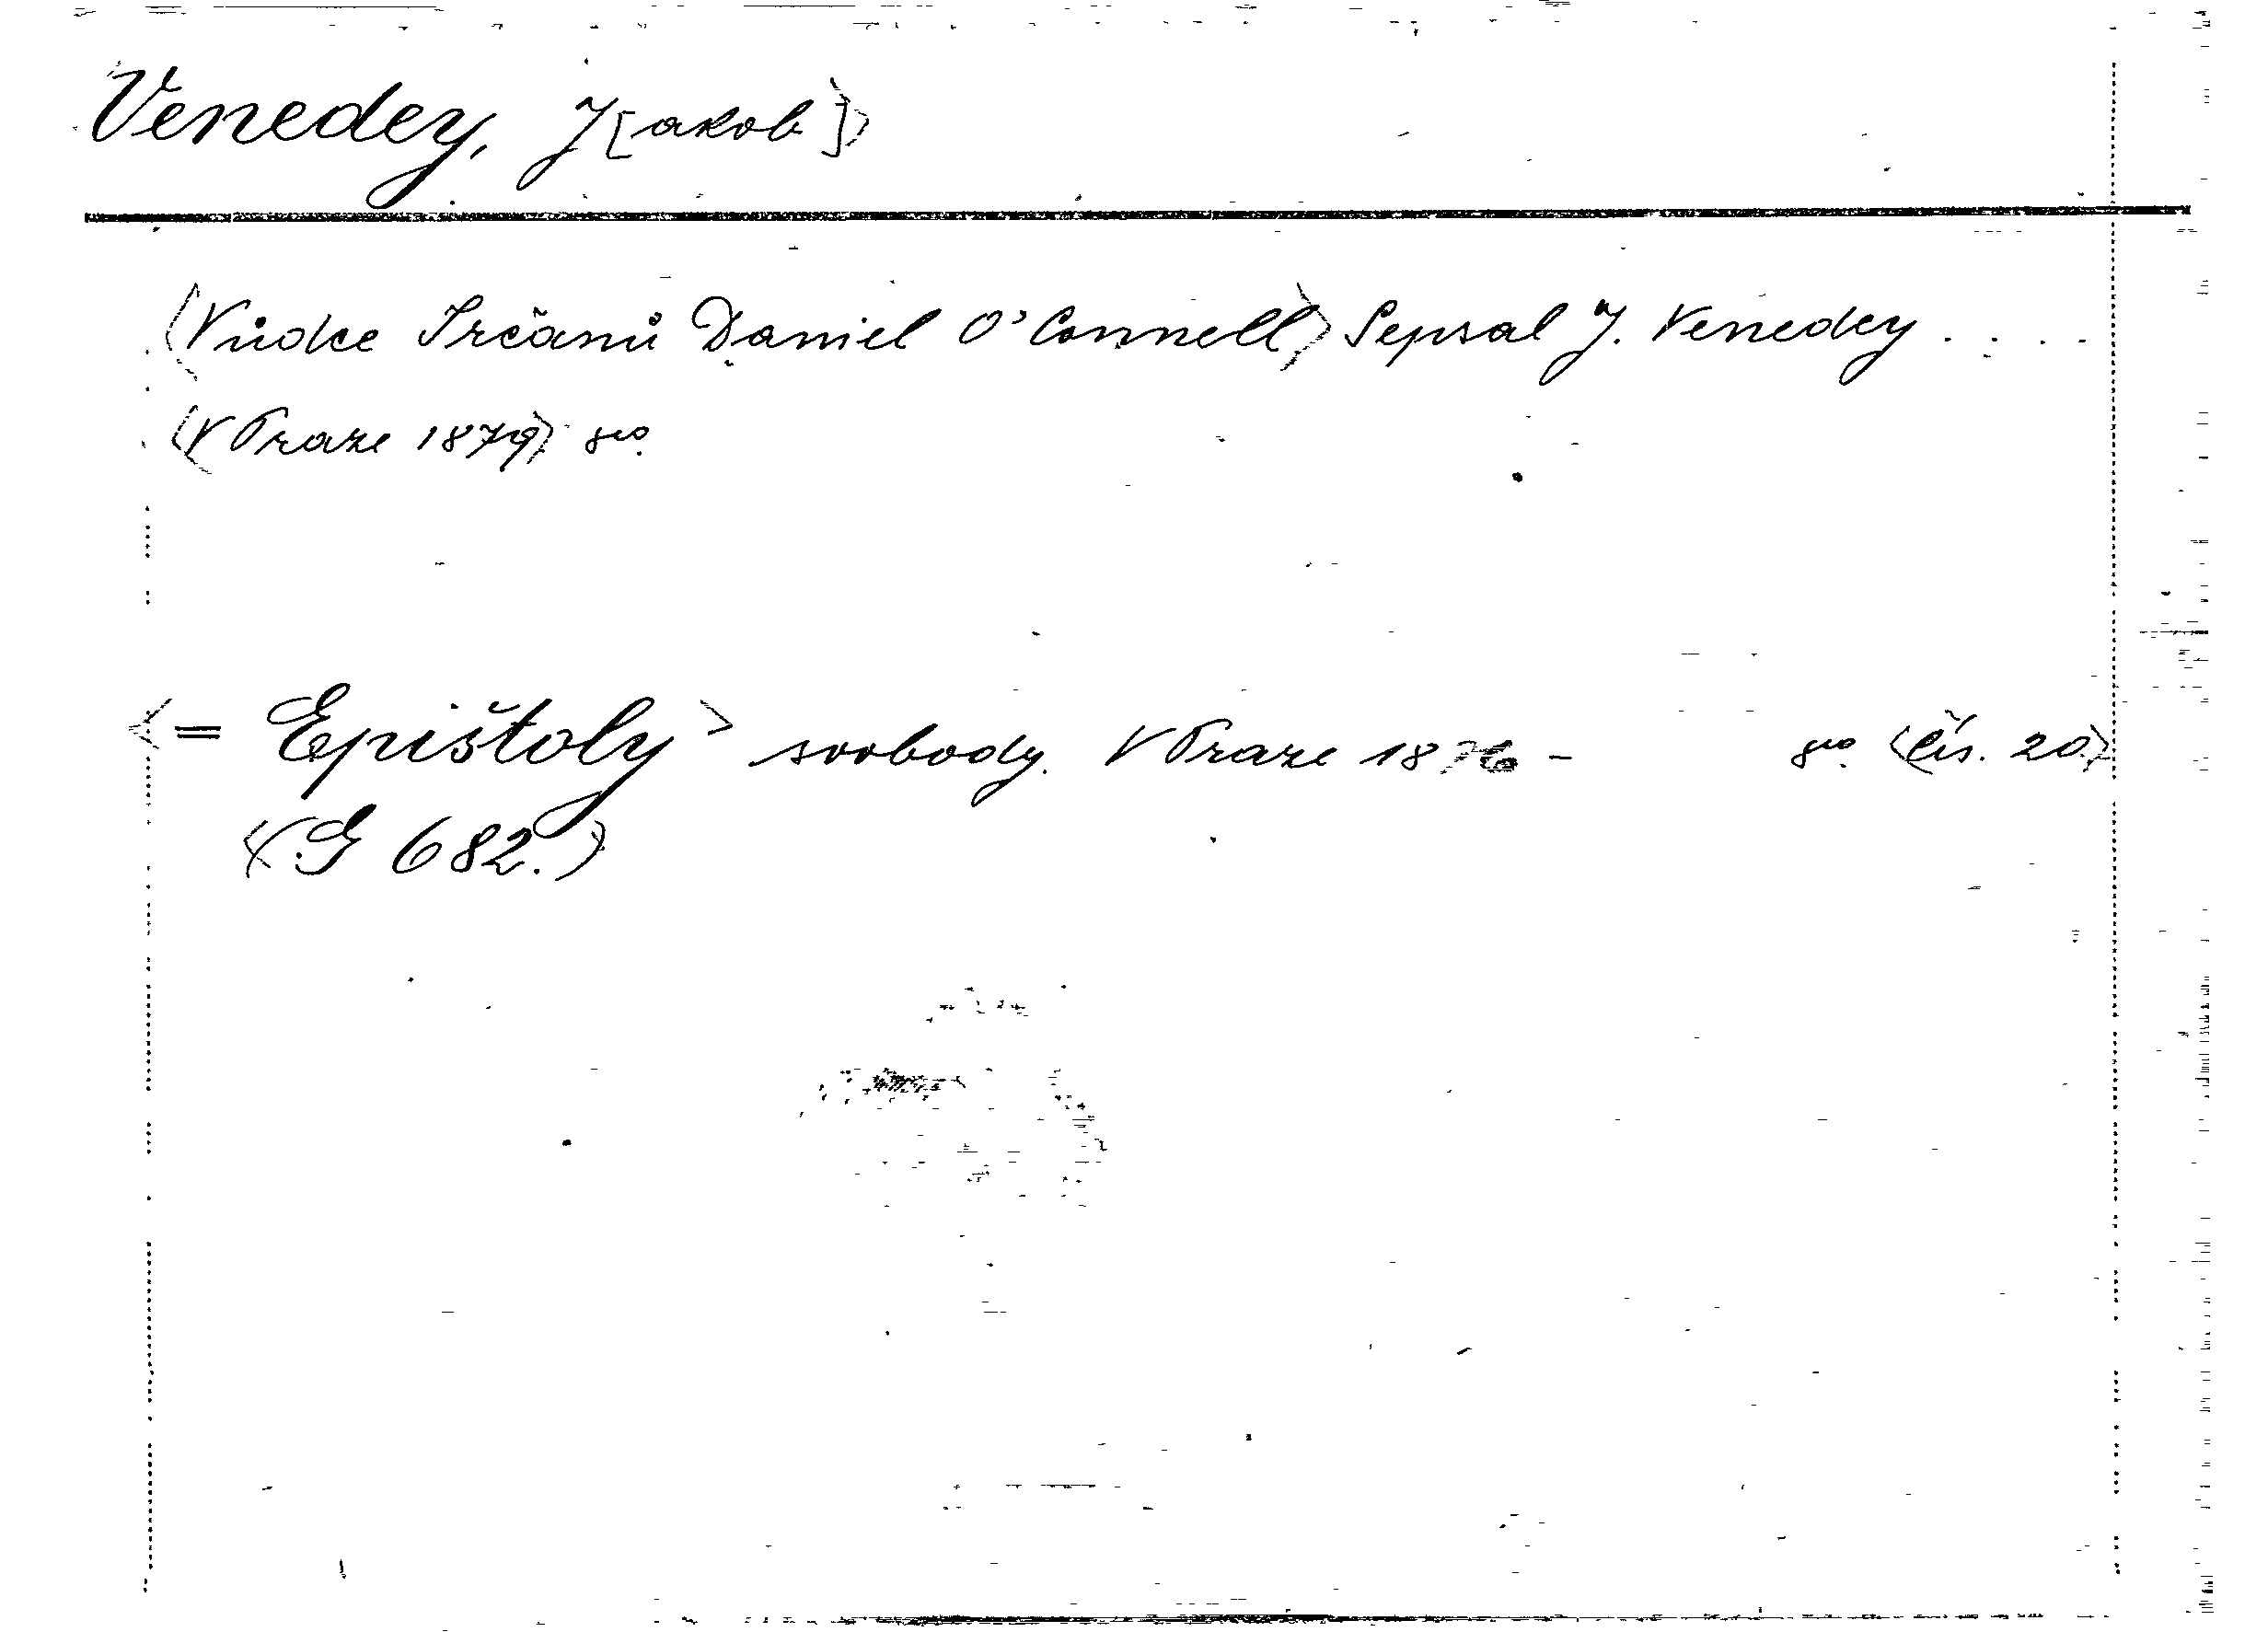 Venedey, J[akob]⟩
⟨Vůdce Irčanů Daniel O'Connell⟩ Sepsal J. Venedey . . . .
⟨V Praze 1879⟩ 8vo.
⟨= Epištoly⟩ svobody. V Praze 1876 - 8vo. ⟨Čís. 20.⟩
⟨(G 682.)